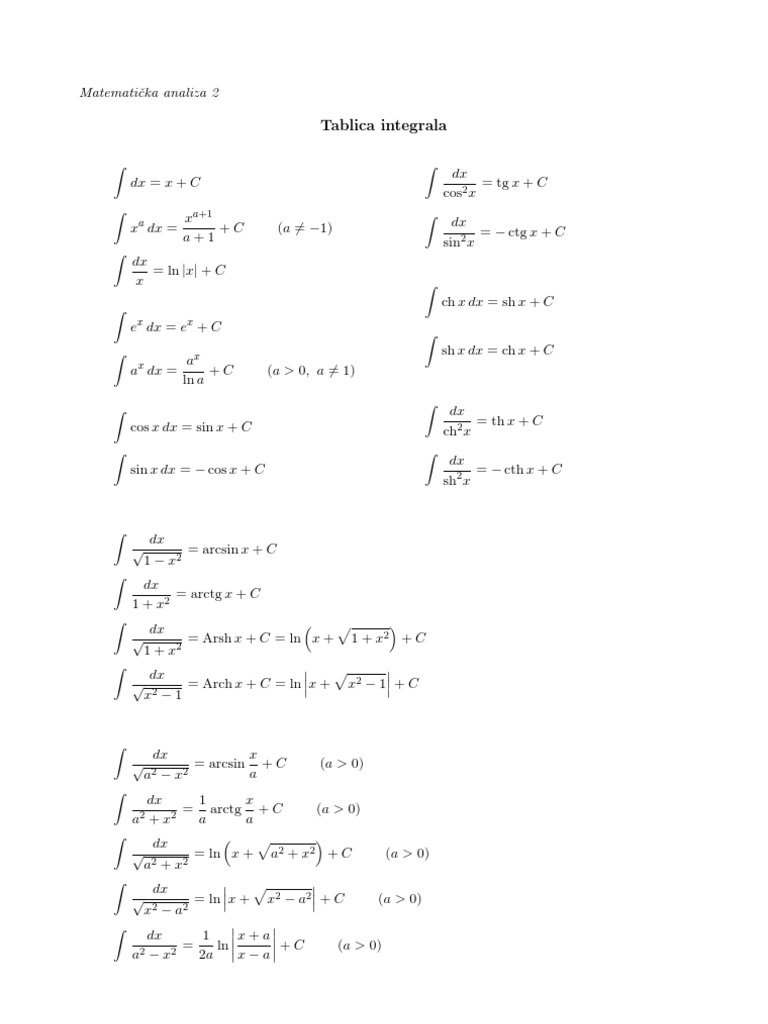 Matematička analiza 2
Tablica integrala
∫ dx = x + C
∫ x^a dx = x^{a+1}/(a + 1) + C (a ≠ −1)
∫ dx/x = ln |x| + C
∫ e^x dx = e^x + C
∫ a^x dx = a^x/ln a + C (a > 0, a ≠ 1)
∫ cos x dx = sin x + C
∫ sin x dx = − cos x + C
∫ dx/cos² x = tg x + C
∫ dx/sin² x = − ctg x + C
∫ ch x dx = sh x + C
∫ sh x dx = ch x + C
∫ dx/ch² x = th x + C
∫ dx/sh² x = − cth x + C
∫ dx/√(1 − x²) = arcsin x + C
∫ dx/(1 + x²) = arctg x + C
∫ dx/√(1 + x²) = Arsh x + C = ln (x + √(1 + x²)) + C
∫ dx/√(x² − 1) = Arch x + C = ln |x + √(x² − 1)| + C
∫ dx/√(a² − x²) = arcsin x/a + C (a > 0)
∫ dx/(a² + x²) = 1/a arctg x/a + C (a > 0)
∫ dx/√(a² + x²) = ln (x + √(a² + x²)) + C (a > 0)
∫ dx/√(x² − a²) = ln |x + √(x² − a²)| + C (a > 0)
∫ dx/(a² − x²) = 1/2a ln |(x + a)/(x − a)| + C (a > 0)